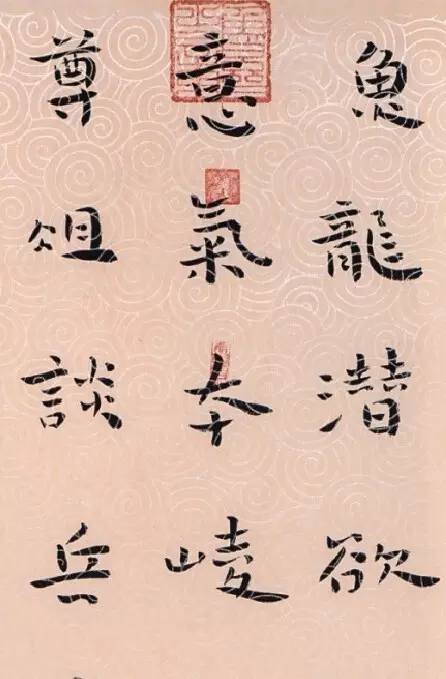 魚龍潜欲
意氣本崚
尊俎談兵